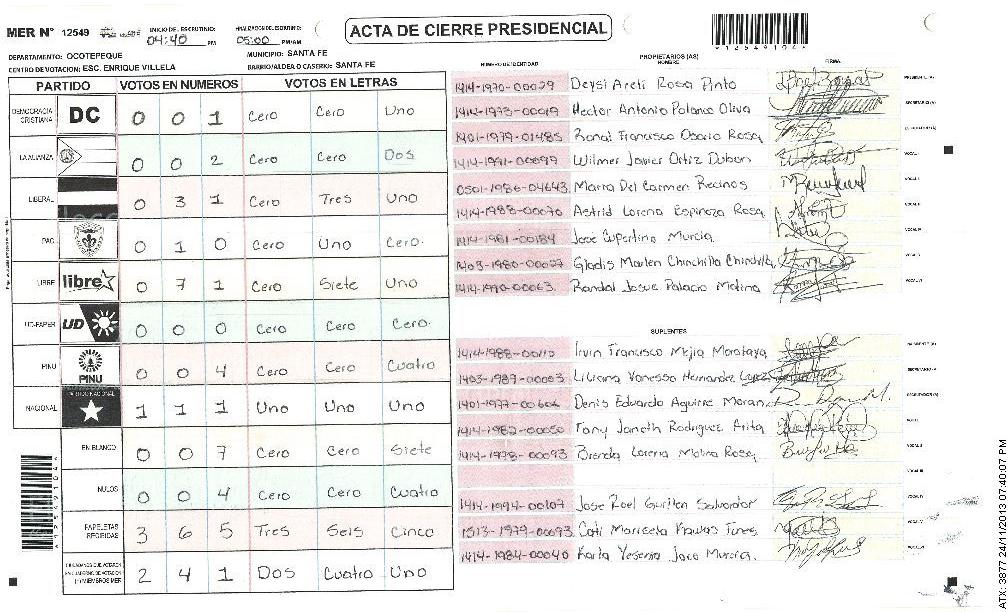 MER Nº 12549 INICIO DE ESCRUTINIO: 04:40 PM FINALIZACION DEL ESCRUTINIO: 05:00 PM/AM ACTA DE CIERRE PRESIDENCIAL
DEPARTAMENTO: OCOTEPEQUE MUNICIPIO: SANTA FE
CENTRO DE VOTACION: ESC. ENRIQUE VILLELA BARRIO/ALDEA O CASERIO: SANTA FE
PARTIDO VOTOS EN NUMEROS VOTOS EN LETRAS
DEMOCRACIA CRISTIANA DC 0 0 1 Cero Cero Uno
LA ALIANZA 0 0 2 Cero Cero Dos
LIBERAL 0 3 1 Cero Tres Uno
PAC 0 1 0 Cero Uno Cero.
LIBRE libre 0 7 1 Cero Siete Uno
UD-FAPER UD 0 0 0 Cero Cero Cero.
PINU PINU 0 0 4 Cero Cero Cuatro
NACIONAL 1 1 1 Uno Uno Uno
EN BLANCO 0 0 7 Cero Cero Siete
NULOS 0 0 4 Cero Cero Cuatro
PAPELETAS RECIBIDAS 3 6 5 Tres Seis Cinco
2 4 1 Dos Cuatro Uno
NUMERO DE IDENTIDAD PROPIETARIOS (AS) NOMBRE FIRMA
1414-1970-00029 Deysi Areli Rosa Pinto
1414-1973-00019 Hector Antonio Polanco Oliva
1401-1979-01485 Ronal Francisco Osorio Rosa
1414-1991-00099 Wilmer Javier Ortiz Dubon
0501-1986-04643 Maria Del Carmen Recinos
1414-1988-00070 Astrid Lorena Espinoza Rosa
1414-1981-00184 Jose Cupertino Murcia
1403-1980-00027 Gladis Marlen Chinchilla Chinchilla
1414-1990-00063 Randal Josue Palacio Molina
SUPLENTES
1414-1988-00110 Irvin Francisco Mejia
1403-1989-00003 Liliana Vanessa Hernandez Lopez
1401-1977-00606 Denis Eduardo Aguirre Moran
1414-1982-00050 Tony Janeth Rodriguez Arita
1414-1978-00093 Brenda Lorena Molina Rosa
1414-1994-00107 Jose Roel Salvador
1513-1979-00693
1414-1984-00040 Karla Yesenia Murcia.
ATX: 3877 24/11/2013 07:40:07 PM